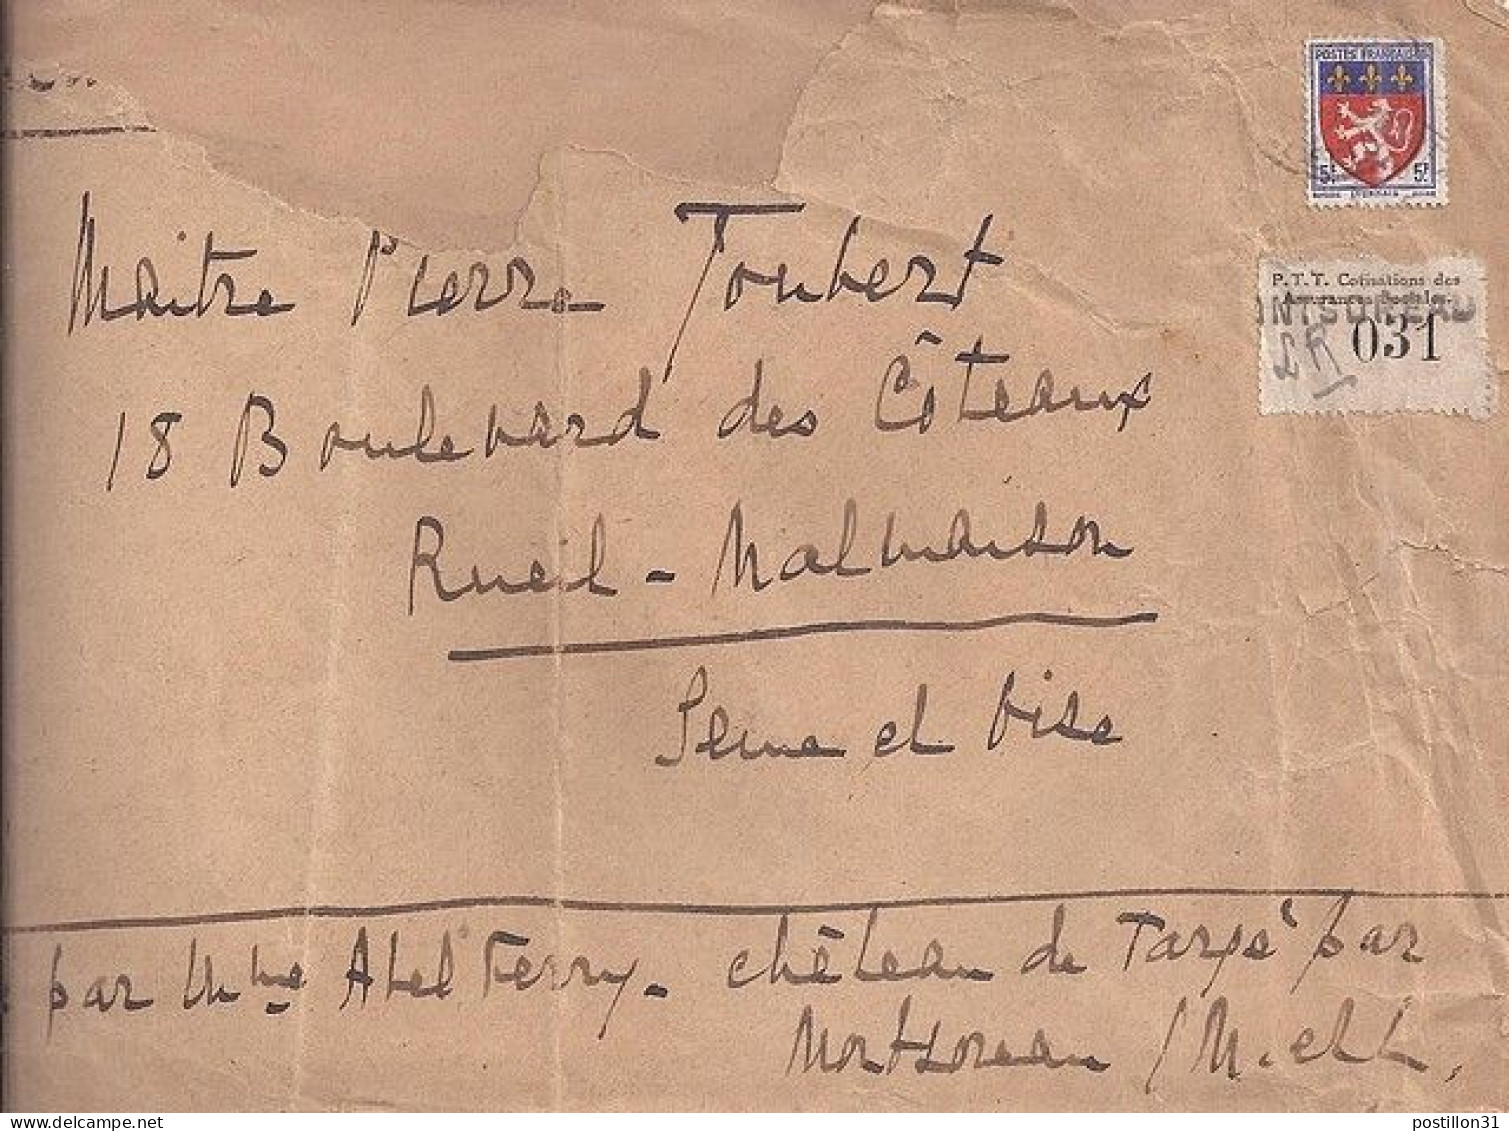 POSTES FRANÇAISES
5F 5F
LYONNAIS
P.T.T. Cotisations des
Assurances Sociales.
NTSOREAU
031
Maitre Pierre Joubert
18 Boulevard des Côteaux
Rueil - Malmaison
Seine et Oise
par Mme Abel Ferry - château de Targé par
Montsoreau / M. et L.
postillon31